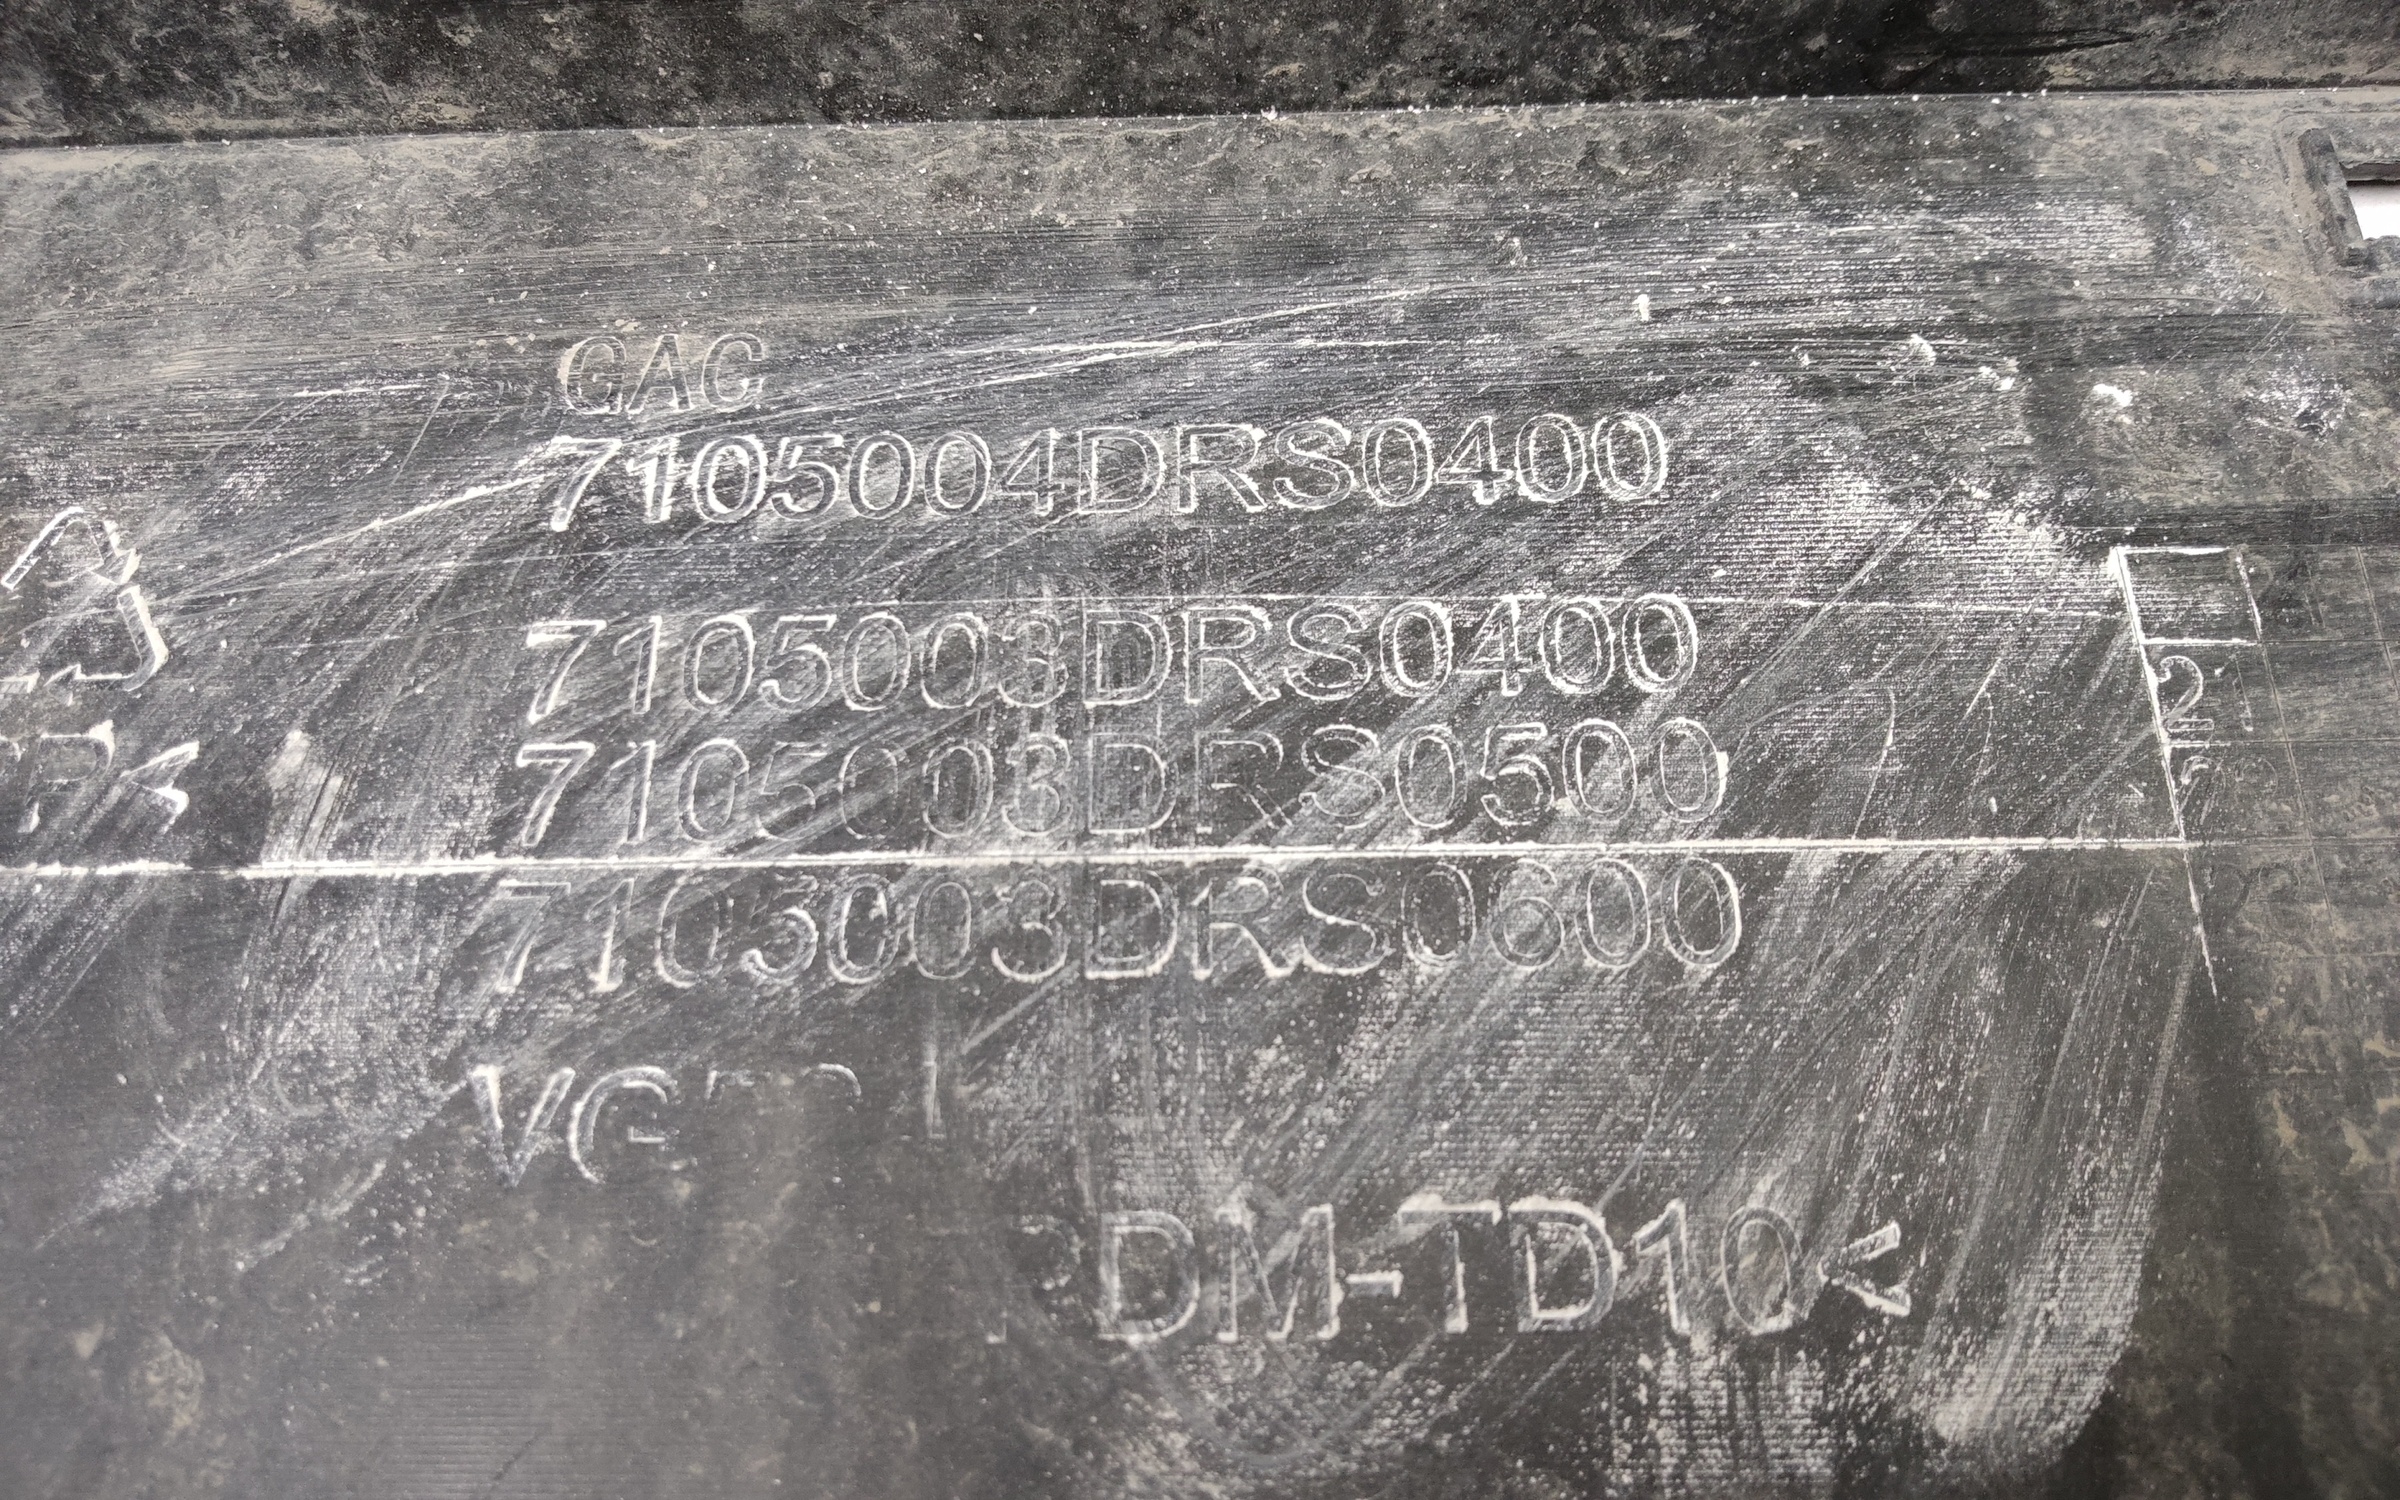 GAC
7105004DRS0400
7105003DRS0400
7105003DRS0500
7105003DRS0600
PDM-TD10<
P<
21